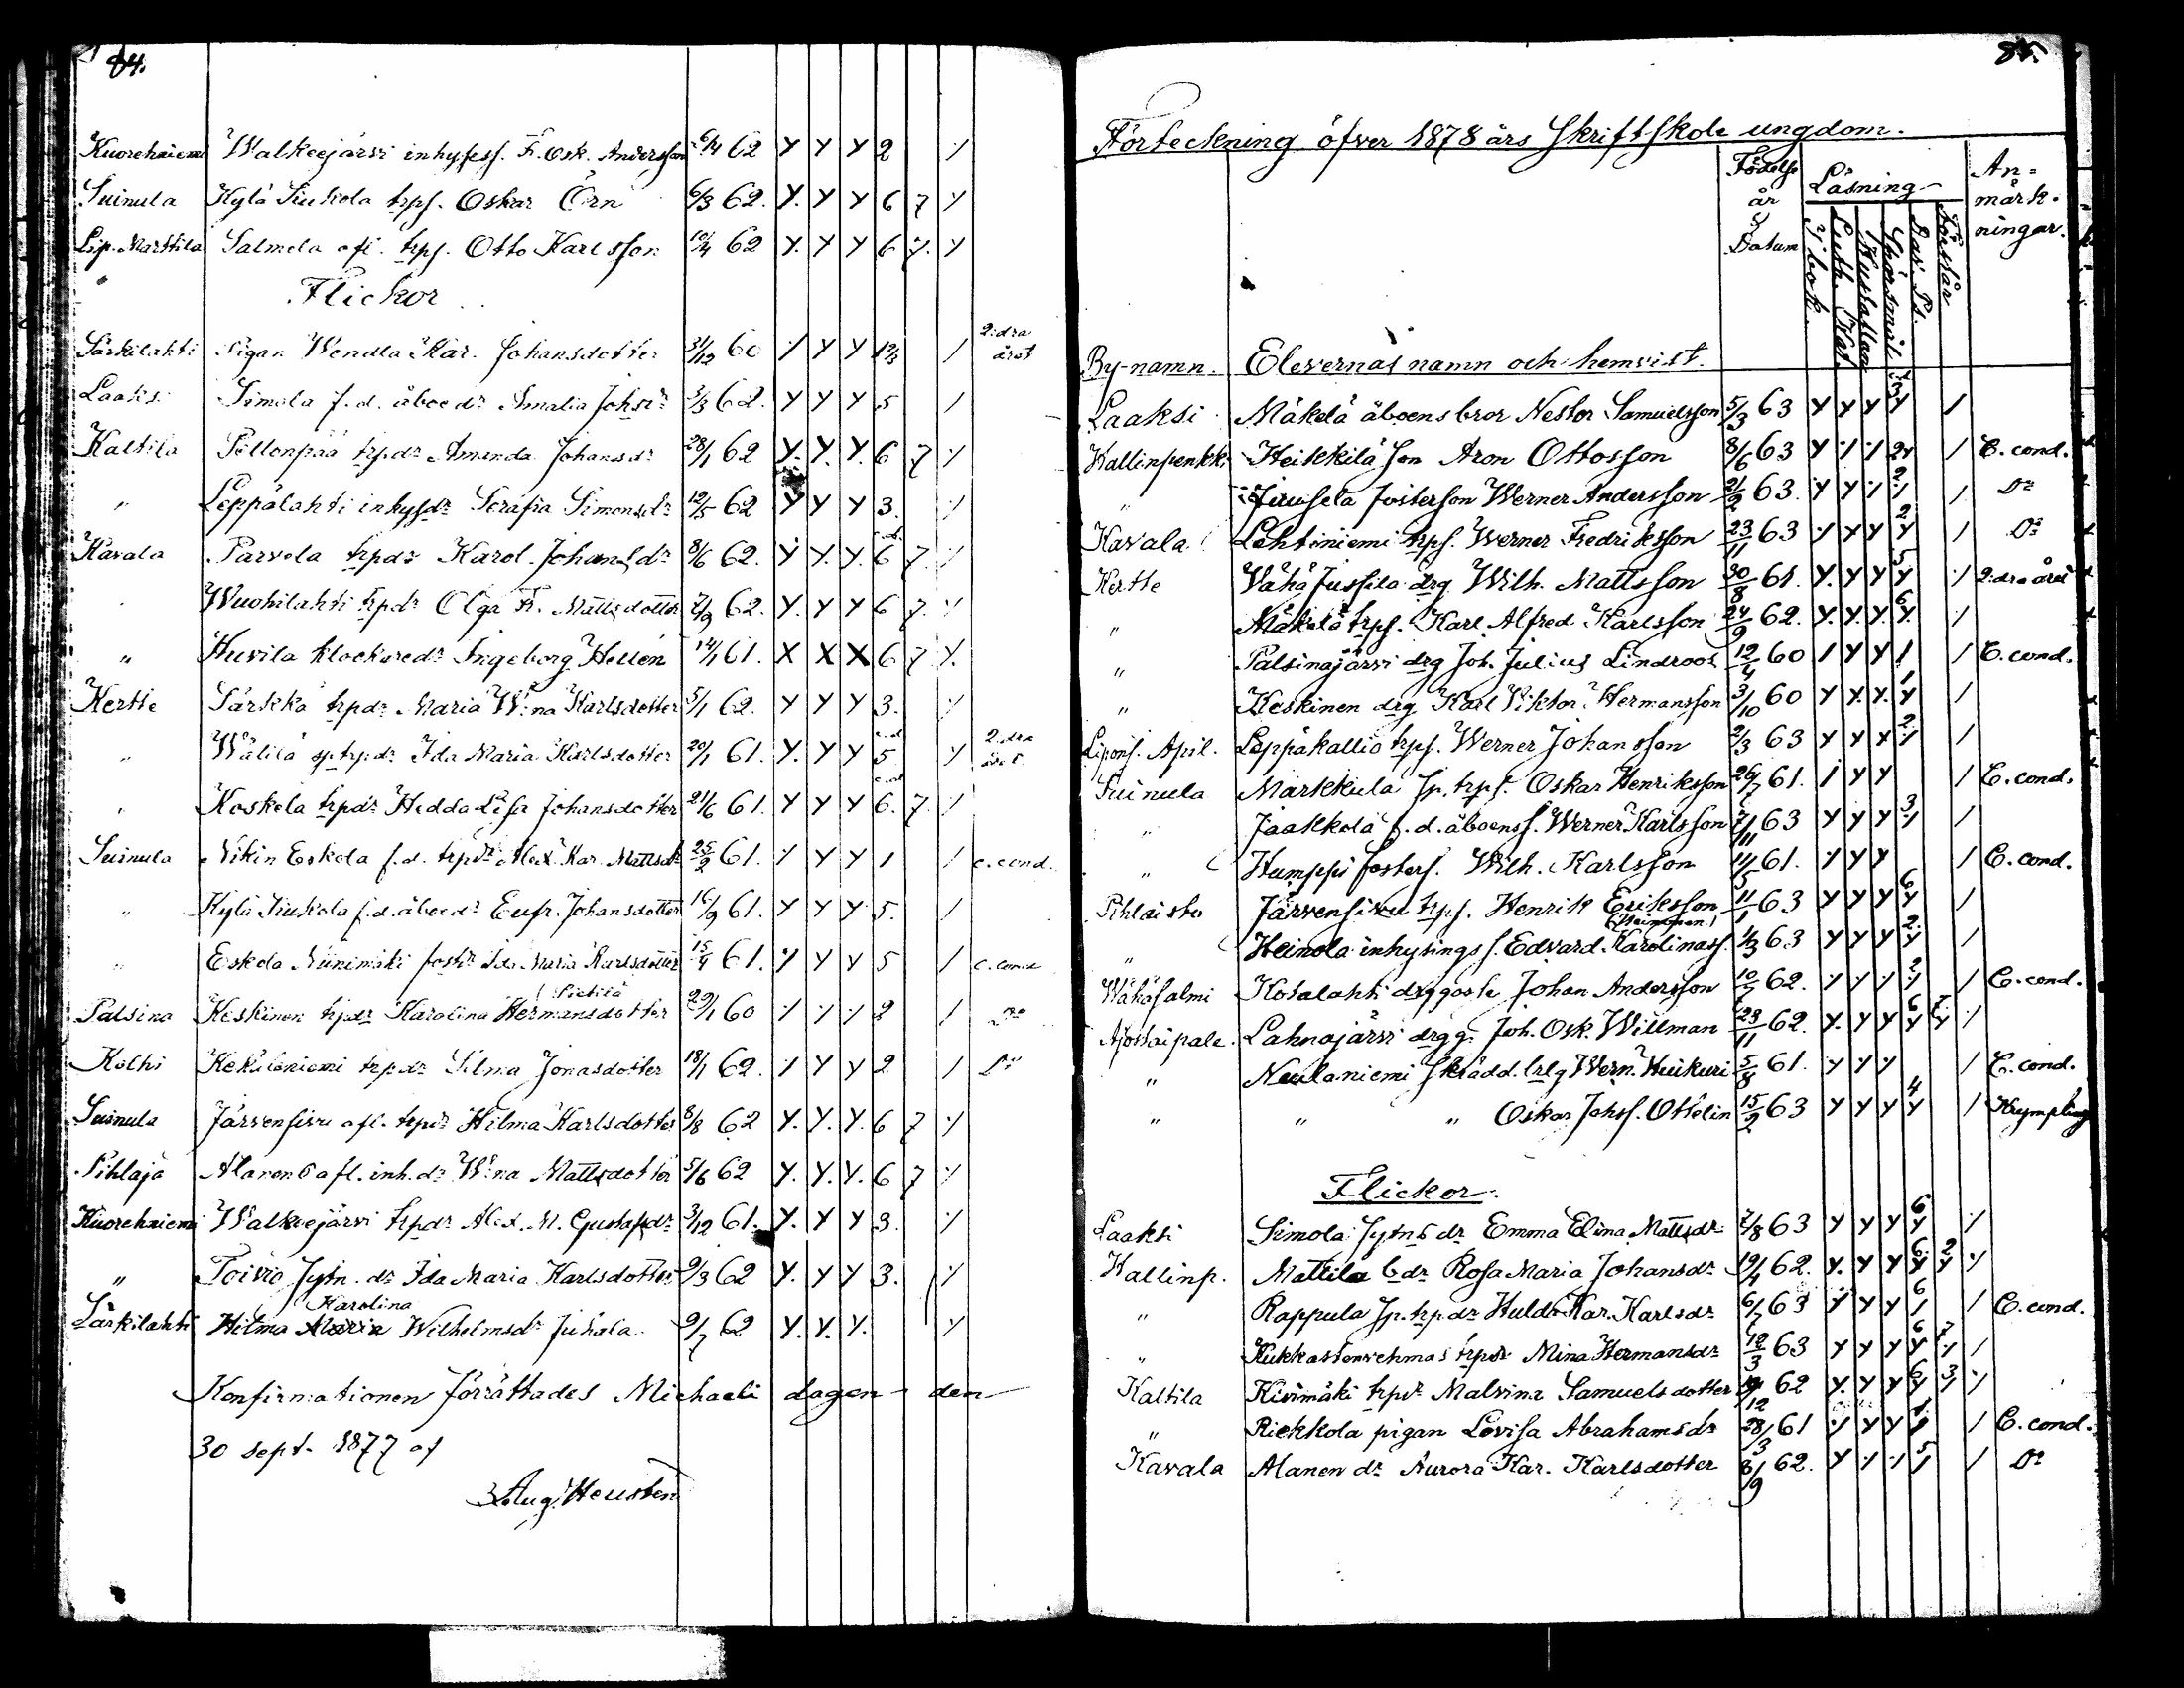 84.
Kuorehniemi Walkeejärvi inhyses s. F. Osk. Andersson 6/4 62 Y Y Y 2 ·/
Suinula Kylä Kukola trps. Oskar Örn 6/3 62. Y. Y Y 6 7 ·/
Lip. Marttila Salmela afl. trps. Otto Karlsson 10/4 62 Y. Y Y 6 7. ·/
Flickor
Särkilahti Pigan Wendla Kar. Johansdotter 31/12 60 ·/ Y Y / 2:dra året
Laaks. Simola f.d. åboedr Amalia Johsdr 3/3 62. Y Y Y 5 /
Kaltila Pellonpää trpdr Amanda Johansdr 28/1 62 Y. Y. Y. 6 7 ·/
" Leppälahti inhysdr Serafia Simonsdr 12/5 62 Y Y Y 3. ·/
Kavala Parvela trpdr Karol. Johansdr 8/6 62. Y. Y. Y. 6 7. ·/
" Wuohilahti trpdr Olga Fr. Mattsdotter 7/9 62. Y. Y Y 6 7. ·/
" Huvila klockaredr Ingeborg Hellén 14/1 61. X X X 6 7 Y.
Kertte Särkkä trpdr Maria W:na Karlsdotter 5/1 62. Y Y Y 3. ·/
" Wälilä sp. trpdr Ida Maria Karlsdotter 20/1 61. Y. Y Y 5 ·/ 2:dra året
" Koskela trpdr Hedda Lisa Johansdotter 21/6 61. Y Y Y 6. 7. ·/
Suinula Nikin Eskola f.d. trpdr Alex. Kar. Mattsdr 25/2 61. ·/ Y Y 1 / c. cond.
" Kylä Kukola f.d. åboedr Eufr. Johansdotter 16/9 61. Y Y Y 5. /
" Eskola Niinimäki fostr Ida Maria Karlsdotter 15/4 61. ·/ Y Y 5 / c. cond
Pietilä
Palsina Keskinen trpdr Karolina Hermansdotter 29/1 60 ·/ ·/ ·/ 2 / Do
Kolhi Kekäleniemi trpdr Silma Jonasdotter 18/1 62. ·/ Y Y 2 / Do
Suinula Järvensivu afl. trpdr Hilma Karlsdotter 8/8 62 Y. Y. Y. 6 7 ·/
Pihlaja Alanen b afl. inh. dr W:na Mattsdotter 5/6 62 Y. Y. Y. 6 7 ·/
Kuorehniemi Walkeejärvi trpdr Alex. M. Gustafsdr 3/12 61. Y. Y Y 3. ·/
" Toivio sytn. dr Ida Maria Karlsdotter 9/3 62 Y. Y Y 3. ·/
Karolina
Särkilahti Hilma Maria Wilhelmsdr Juhola 9/7 62 Y. Y. Y. ·/
Konfirmationen förrättades Michaeli dagen den
30 sept. 1877 af
Aug. Heusten
85.
Förteckning öfver 1878 års Skriftskole ungdom.
By-namn. Elevernas namn och hemvist. Födelse år & Datum Läsning I bok Luth. Kat. Hustaflan Spörsmål Dav. Ps. Förstår Anmärkningar.
Laaksi Mäkelä åboens bror Nestor Samuelsson 5/3 63 Y Y Y 3 Y /
Hallinpenkki Heikkilä son Aron Ottosson 8/6 63 Y ·/ ·/ 2 Y / C. cond.
" Jussela fosterson Werner Andersson 21/2 63. Y Y ·/ 2 ·/ / Do
Kavala Lehtiniemi trps. Werner Fredriksson 23/11 63 ·/ Y Y 2 Y / Do
Kertte Wähä Jussila drg. Wilh. Mattsson 30/8 61. Y. Y Y 5 Y ·/ 2:dra året
" Mäkelä trps. Karl Alfred Karlsson 24/9 62. Y. Y. Y. 6 Y. ·/
" Palsinajärvi drg Joh. Julius Lindroos 12/4 60 / Y Y / / C. cond.
" Keskinen drg Karl Viktor Hermansson 3/10 60 Y Y. Y. 1 Y /
Lipons. April. Leppäkallio trps. Werner Johansson 2/3 63 Y Y X 2 ·/ /
Suinula Markkula sp. trps. Oskar Henriksson 26/7 61. / Y Y / C. cond.
" Jaakkola f.d. åboens s. Werner Karlsson 7/11 63 Y Y Y 3 ·/ /
" Humppi fosters. Wilh. Karlsson 11/5 61. ·/ Y Y / C. cond.
Pihlaisto Järvensivu trps. Henrik Eriksson 11/1 63 Y Y Y 6 Y /
(Heinonen)
" Heinola inhysings s. Edvard Karolinas s. 1/3 63 Y Y Y 2 Y /
Wähäsalmi Kotalahti drggosse Johan Andersson 10/7 62. ·/ ·/ ·/ 2 ·/ / C. cond.
Ajostaipale. Lahnajärvi drgg. Joh. Osk. Willman 23/11 62. Y. Y Y 6 Y 7 Y ·/
" Neulaniemi skrädd. lrlg Wern. Huikuri 5/8 61. ·/ Y ·/ / C. cond.
" " " Oskar Johss. Ottelin 15/2 63 Y Y Y 4 Y / Krympling
Flickor.
Laaksi Simola sytn b dr Emma Elina Mattsdr 7/8 63 Y Y Y 6 Y ·/
Hallinp. Mattila b dr Rosa Maria Johansdr 19/4 62. Y. Y Y 6 Y 2 Y ·/
" Rappula sp. trpdr Hulda Kar. Karlsdr 6/7 63 Y Y Y 6 / / C. cond.
" Kukkastenvehmas trpdr Mina Hermansdr 12/3 63 Y Y Y 6 Y 7 ·/ /
Kaltila Kivimäki trpdr Malvina Samuelsdotter 62 Y. Y Y 6 Y 3 / ·/
" Riekkola pigan Lovisa Abrahamsdr 28/3 61 ·/ Y Y 1 / C. cond.
Kavala Alanen dr Aurora Kar. Karlsdotter 8/9 62. Y ·/ ·/ 5 / / Do